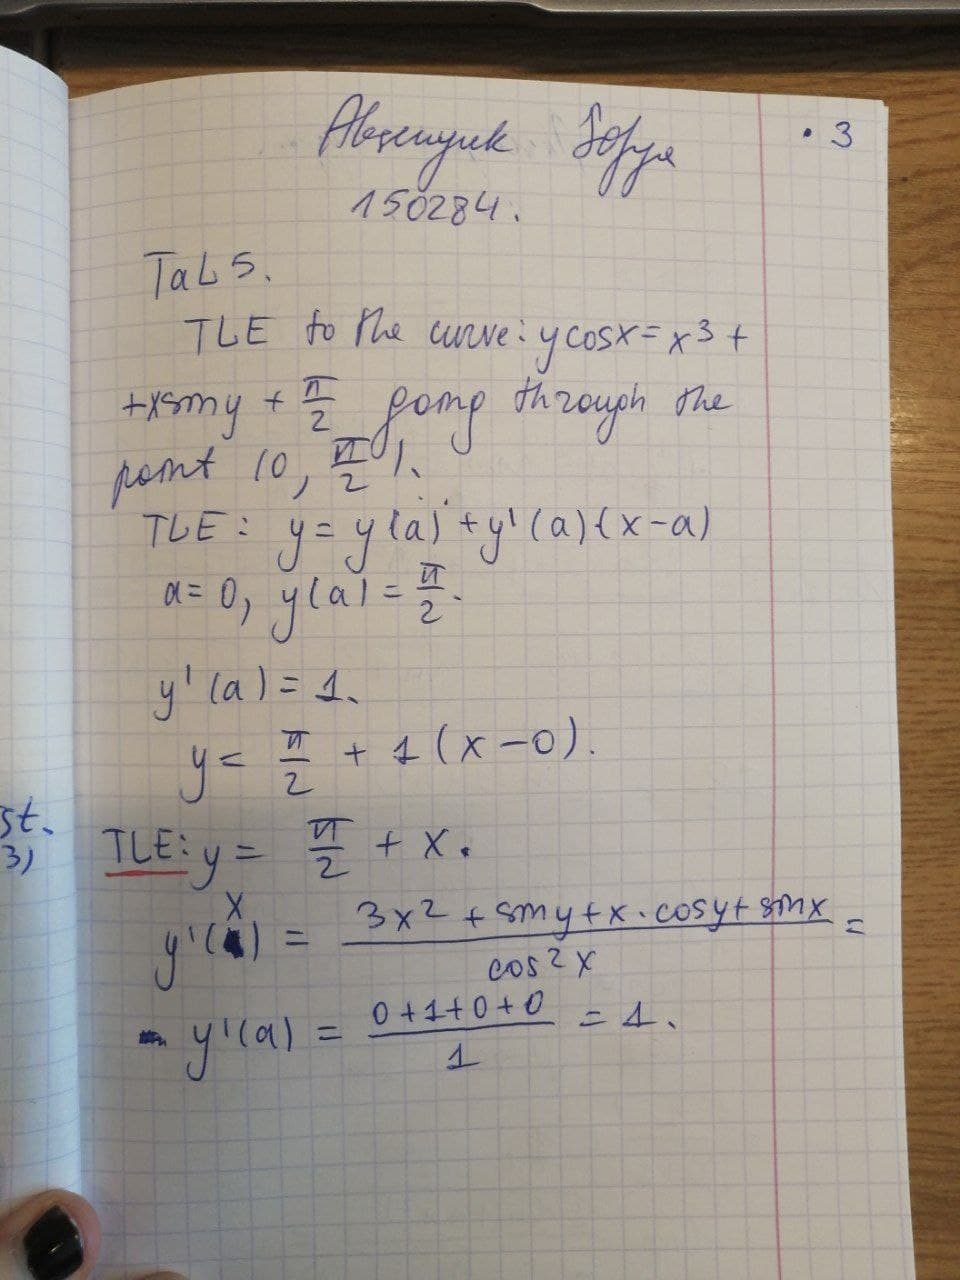 Sofya
• 3
150284.
TaL 5.
TLE to the curve: y cosx = x³ +
+xsiny + π/2 going through the
point (0, π/2).
TLE: y = y(a) + y'(a)(x-a)
a = 0, y(a) = π/2.
y'(a) = 1.
y = π/2 + 1(x-0).
st.
TLE: y = π/2 + x.
3)
y'(x) = (3x² + siny + x·cosy + sinx)/(cos²x) =
y'(a) = (0+1+0+0)/1 = 1.